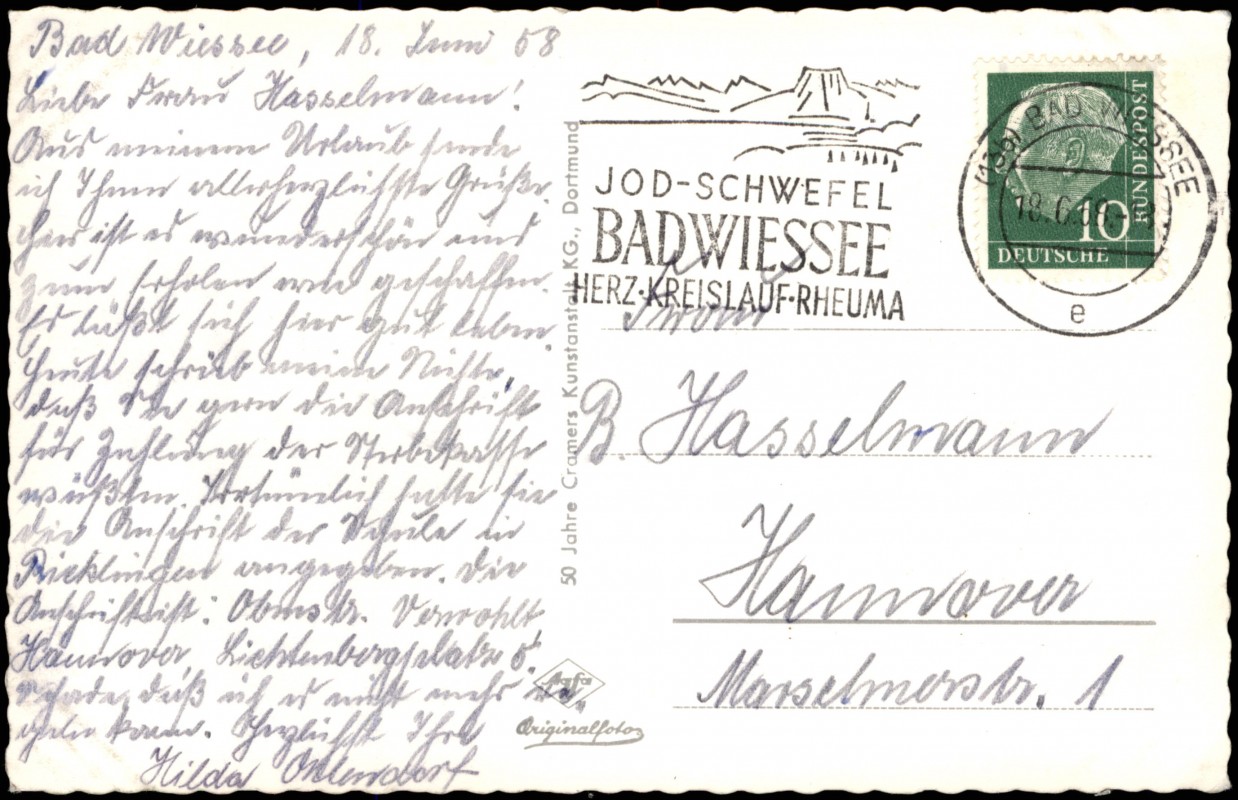 Bad Wiessee, 18. Juni 58
Liebe Frau Hasselmann!
Aus meinem Urlaub sende
ich Ihnen allerherzlichste Grüße.
Hier ist es wunderschön und
zum Erholen wie geschaffen.
Es läßt sich hier gut leben.
Heute schrieb meine Nichte,
daß Sie gern die Anschrift
für Zahlung der Sterbekasse
wüßten. Irrtümlich hatte sie
die Anschrift der Schule in
Ricklingen angegeben. Die
Anschrift ist: Obmstr. Verwohlt
Hannover, Lichtenbergplatz 5.
Schade, daß ich es nicht mehr
geben kann. Herzlichst Ihre
Hilda Ohlendorf
50 Jahre Cramers Kunstanstalt KG., Dortmund
Agfa
Originalfoto
JOD-SCHWEFEL
BAD WIESSEE
HERZ·KREISLAUF·RHEUMA
(13b) BAD WIESSEE
18.6.58
e
10
DEUTSCHE
BUNDESPOST
Frau
B. Hasselmann
Hannover
Marselmerstr. 1